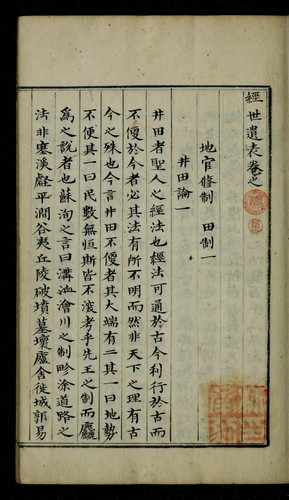 經世遺表卷之
地官修制　田制一
井田論一
井田者聖人之經法也經法可通於古今利行於古而
不便於今者必其法有所不明而然非天下之理有古
今之殊也今言井田不便者其大端有二其一曰地勢
不便其一曰民數無恒斯皆不深考乎先王之制而麤
爲之說者也蘇洵之言曰溝洫澮川之制畛涂道路之
法非塞溪壑平澗谷夷丘陵破墳墓壞廬舍徙城郭易